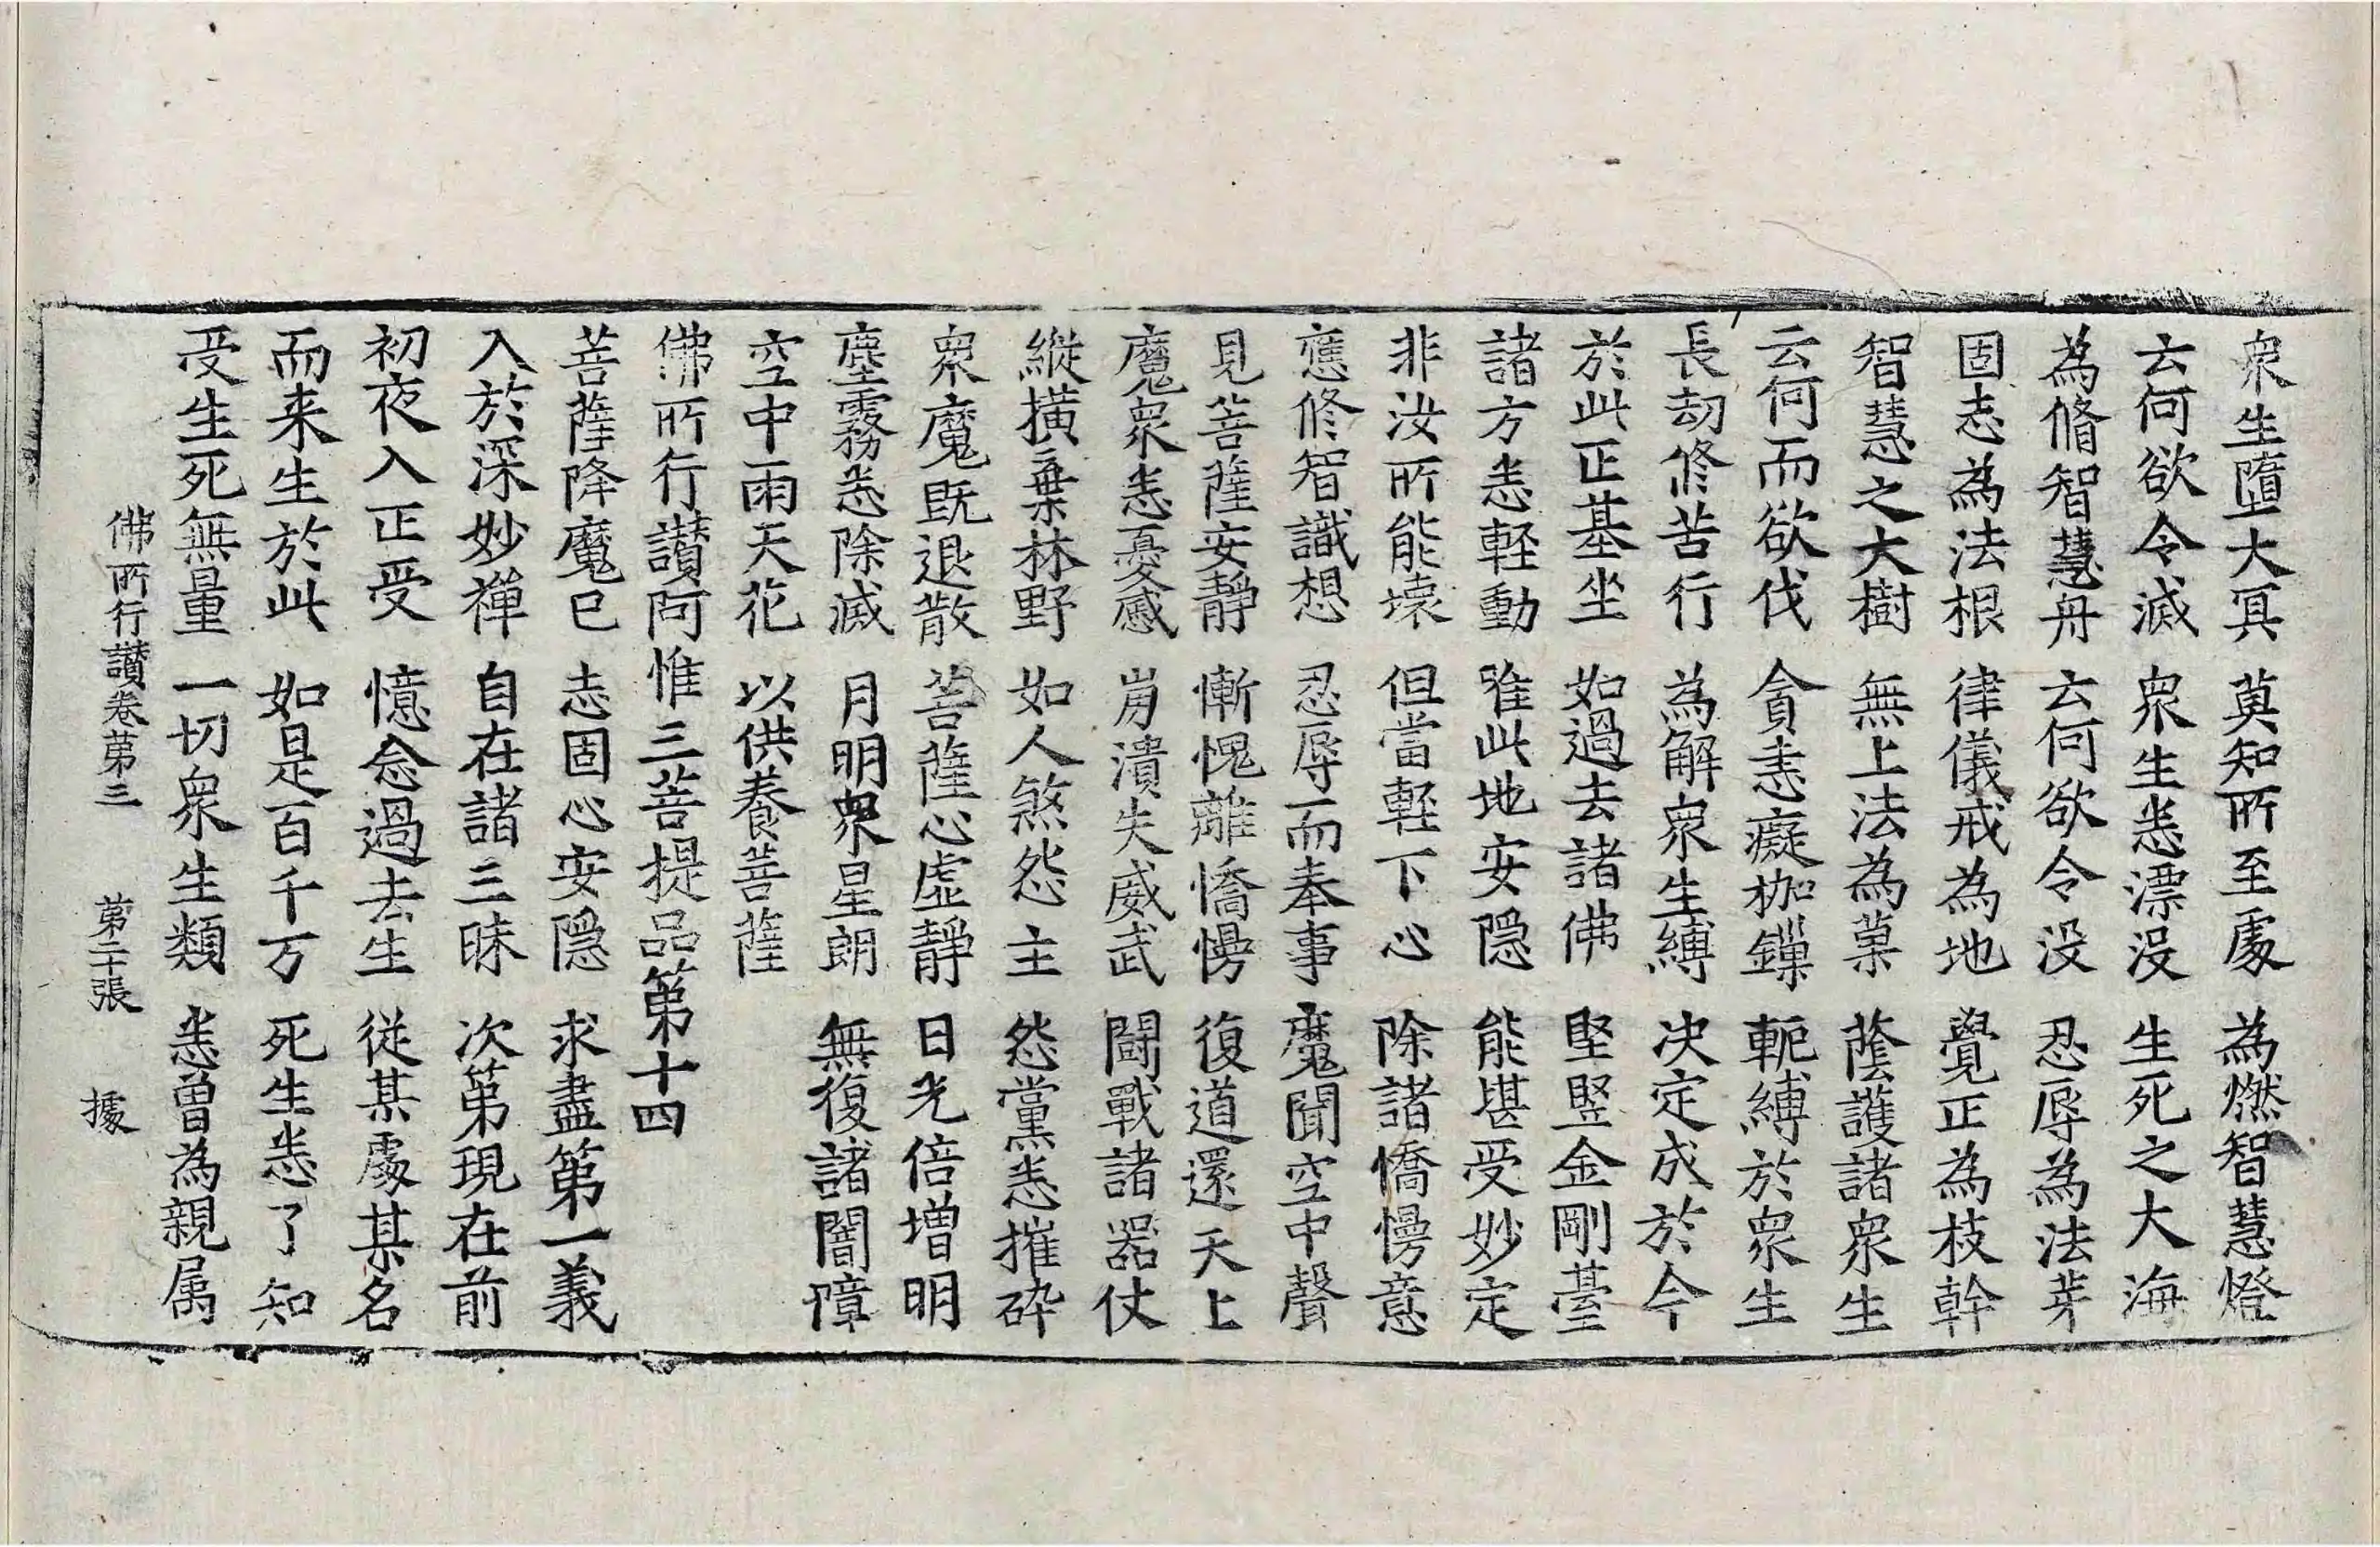 衆生墮大冥　莫知所至處　為燃智慧燈
云何欲令滅　衆生悉漂没　生死之大海
為脩智慧舟　云何欲令没　忍辱為法芽
固志為法根　律儀戒為地　覺正為枝幹
智慧之大樹　無上法為菓　蔭護諸衆生
云何而欲伐　貪恚癡枷鏁　軛縛於衆生
長劫修苦行　為解衆生縛　决定成於今
於此正基坐　如過去諸佛　堅竪金剛臺
諸方悉軽動　唯此地安隠　能堪受妙定
非汝所能壞　但當軽下心　除諸憍慢意
應修智識想　忍辱而奉事　魔聞空中聲
見菩薩安靜　慚愧離憍慢　復道還天上
魔衆悉憂慼　崩潰失威武　鬪戰諸器仗
縱横棄林野　如人煞怨主　怨黨悉摧碎
衆魔既退散　菩薩心虚靜　日光倍増明
塵霧悉除滅　月明衆星朗　無復諸闇障
空中雨天花　以供養菩薩
佛所行讃阿惟三菩提品第十四
菩薩降魔已　志固心安隠　求盡第一義
入於深妙禪　自在諸三昧　次第現在前
初夜入正受　憶念過去生　從某處某名
而来生於此　如是百千万　死生悉了知
受生死無量　一切衆生類　悉曽為親属
佛所行讃卷第三　第二十張　據